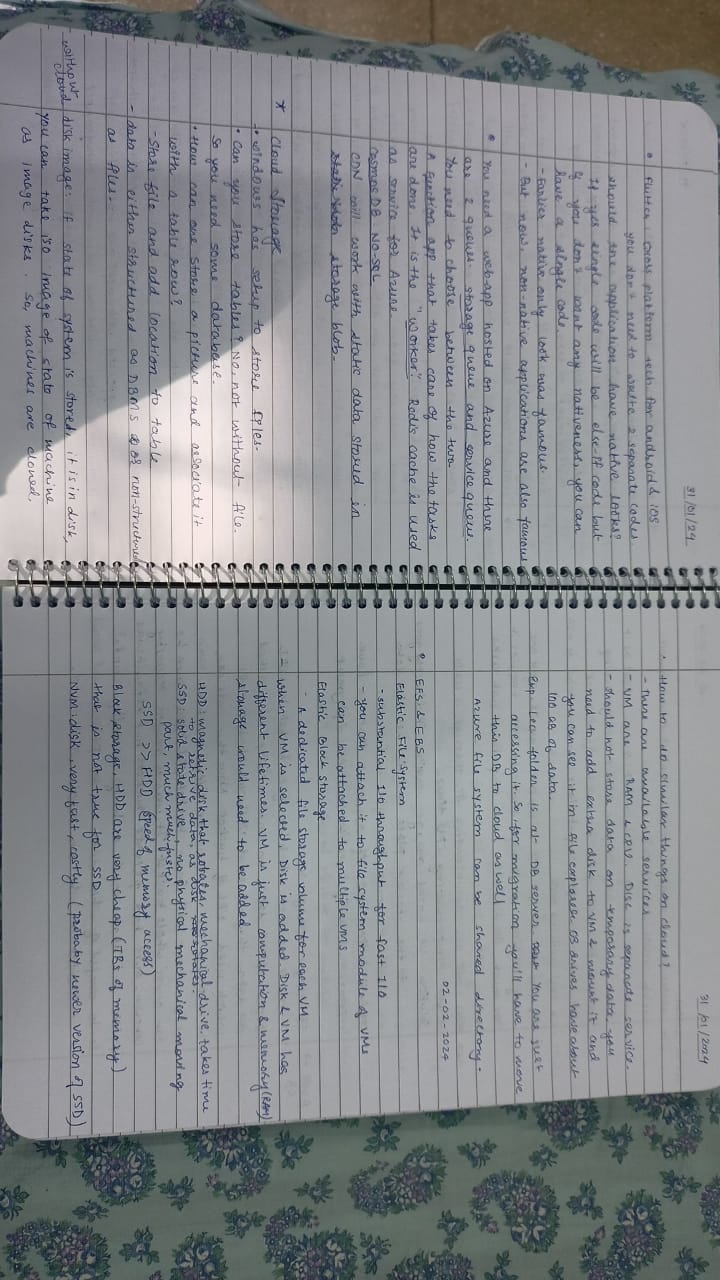 31/01/24
• Flutter: cross platform tech. for android & iOS
you don't need to write 2 separate codes.
should the application have native looks?
If yes single code will be else-if code but
if you don't want any nativeness, you can
have a single code.
- Earlier native only look was famous.
- But now, non-native applications are also famous
• You need a webapp hosted on Azure and there
are 2 queues, storage queue and service queue.
You need to choose between the two
A function app that takes care of how the tasks
are done. It is the "worker". Redis cache is used
as service for Azure
cosmos DB NO-SQL
CDN will work with static data stored in
storage blob.
* Cloud Storage
• windows has setup to store files.
• Can you store tables? No, not without file.
So you need some database.
• How can one store a picture and associate it
with a table row?
- Store file and add location to table
- data is either structured as DBMS & or non-structured
as files.
without cloud disk image: if state of system is stored, it is in disk,
you can take iso image of state of machine
as image disks. So, machines are cloned.
31/01/2024
• How to do similar things on cloud?
- There are available services
- VM are RAM & CPU. Disc is separate service.
- should not store data on temporary data, you
need to add extra disk to VM & mount it and
you can see it in file explorer. OS drives have about
100 GB of data.
Exp Leo folder is at DB server You are just
accessing it. So for migration you'll have to move
this DB to cloud as well
Azure file system can be shared directory.
02-02-2024
• EFS & EBS
Elastic File System
- substantial I/O throughput for fast I/O
- you can attach it to file system module of VMs
can be attached to multiple VMs
Elastic Block storage
- A dedicated file storage volume for each VM
- When VM is selected. Disk is added. Disk & VM has
different lifetimes. VM is just computation & memory (RAM)
storage would need to be added.
HDD: magnetic disk that rotates. mechanical drive. takes time
to retrieve data, as disk rotates.
SSD: solid state drive, no physical mechanical moving
part, much much faster.
SSD >> HDD (speed of memory access)
Block storage, HDD are very cheap. (TBs of memory)
that is not true for SSD
NVM: disk, very fast, costly (probably newer version of SSD)